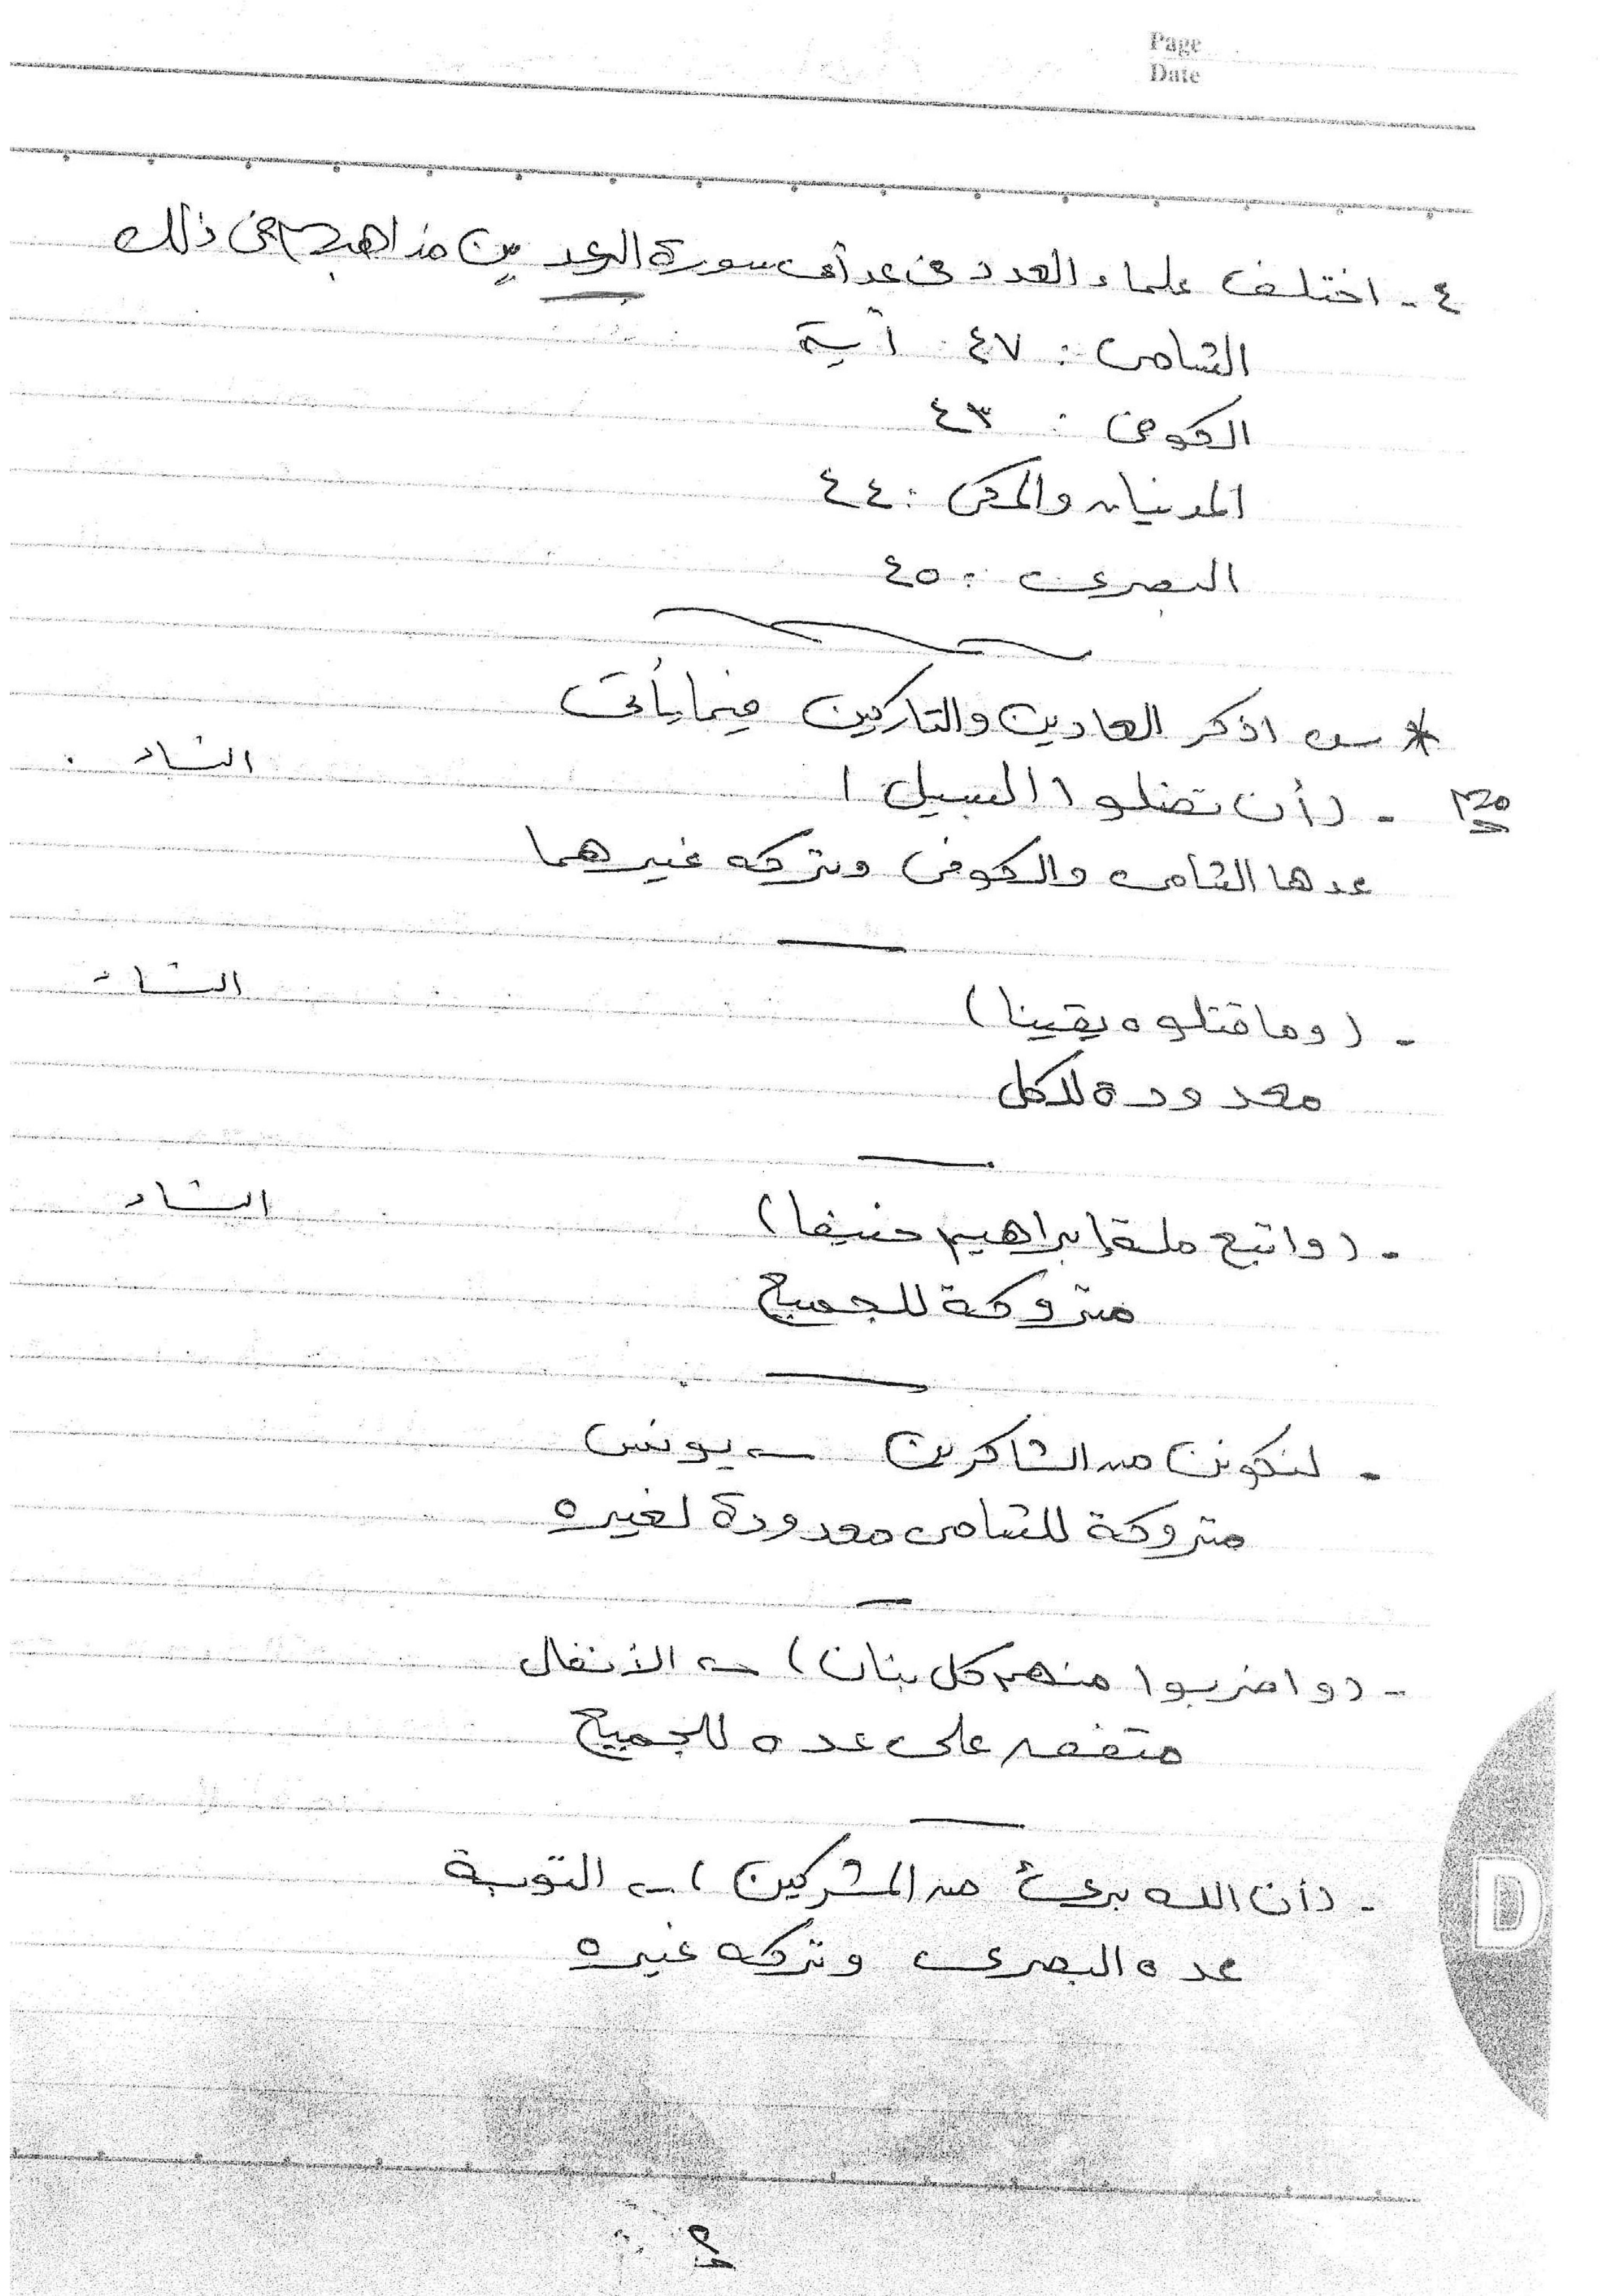 Page
Date
٤ - اختلف علماء العدد في عد آي سورة الرعد بين مذاهبهم في ذلك
الشامي : ٤٧ آية
الكوفي : ٤٣
المدنيان والمكي : ٤٤
البصري : ٤٥
* س اذكر العادين والتاركين فيما يأتي
- (أن تضلوا السبيل) النساء
عدها الشامي والكوفي وتركه غيرهما
- (وما قتلوه يقينا) النساء
معدودة للكل
- (واتبع ملة إبراهيم حنيفا) النساء
متروكة للجميع
- لنكونن من الشاكرين ← يونس
متروكة للشامي معدودة لغيره
- (واضربوا منهم كل بنان) ← الأنفال
متفق على عده للجميع
- (أن الله برئ من المشركين) ← التوبة
عده البصري وتركه غيره
D